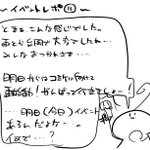 〜イベントレポ⑪〜
とまぁ、こんな感じでした。
あとから台風で大変でしたね…
みんなおつかれさまです…
明日からはコミケに向けて
再始動！がんばって行きますよー！
…明日（今日）イベント
あるんだよなー…。